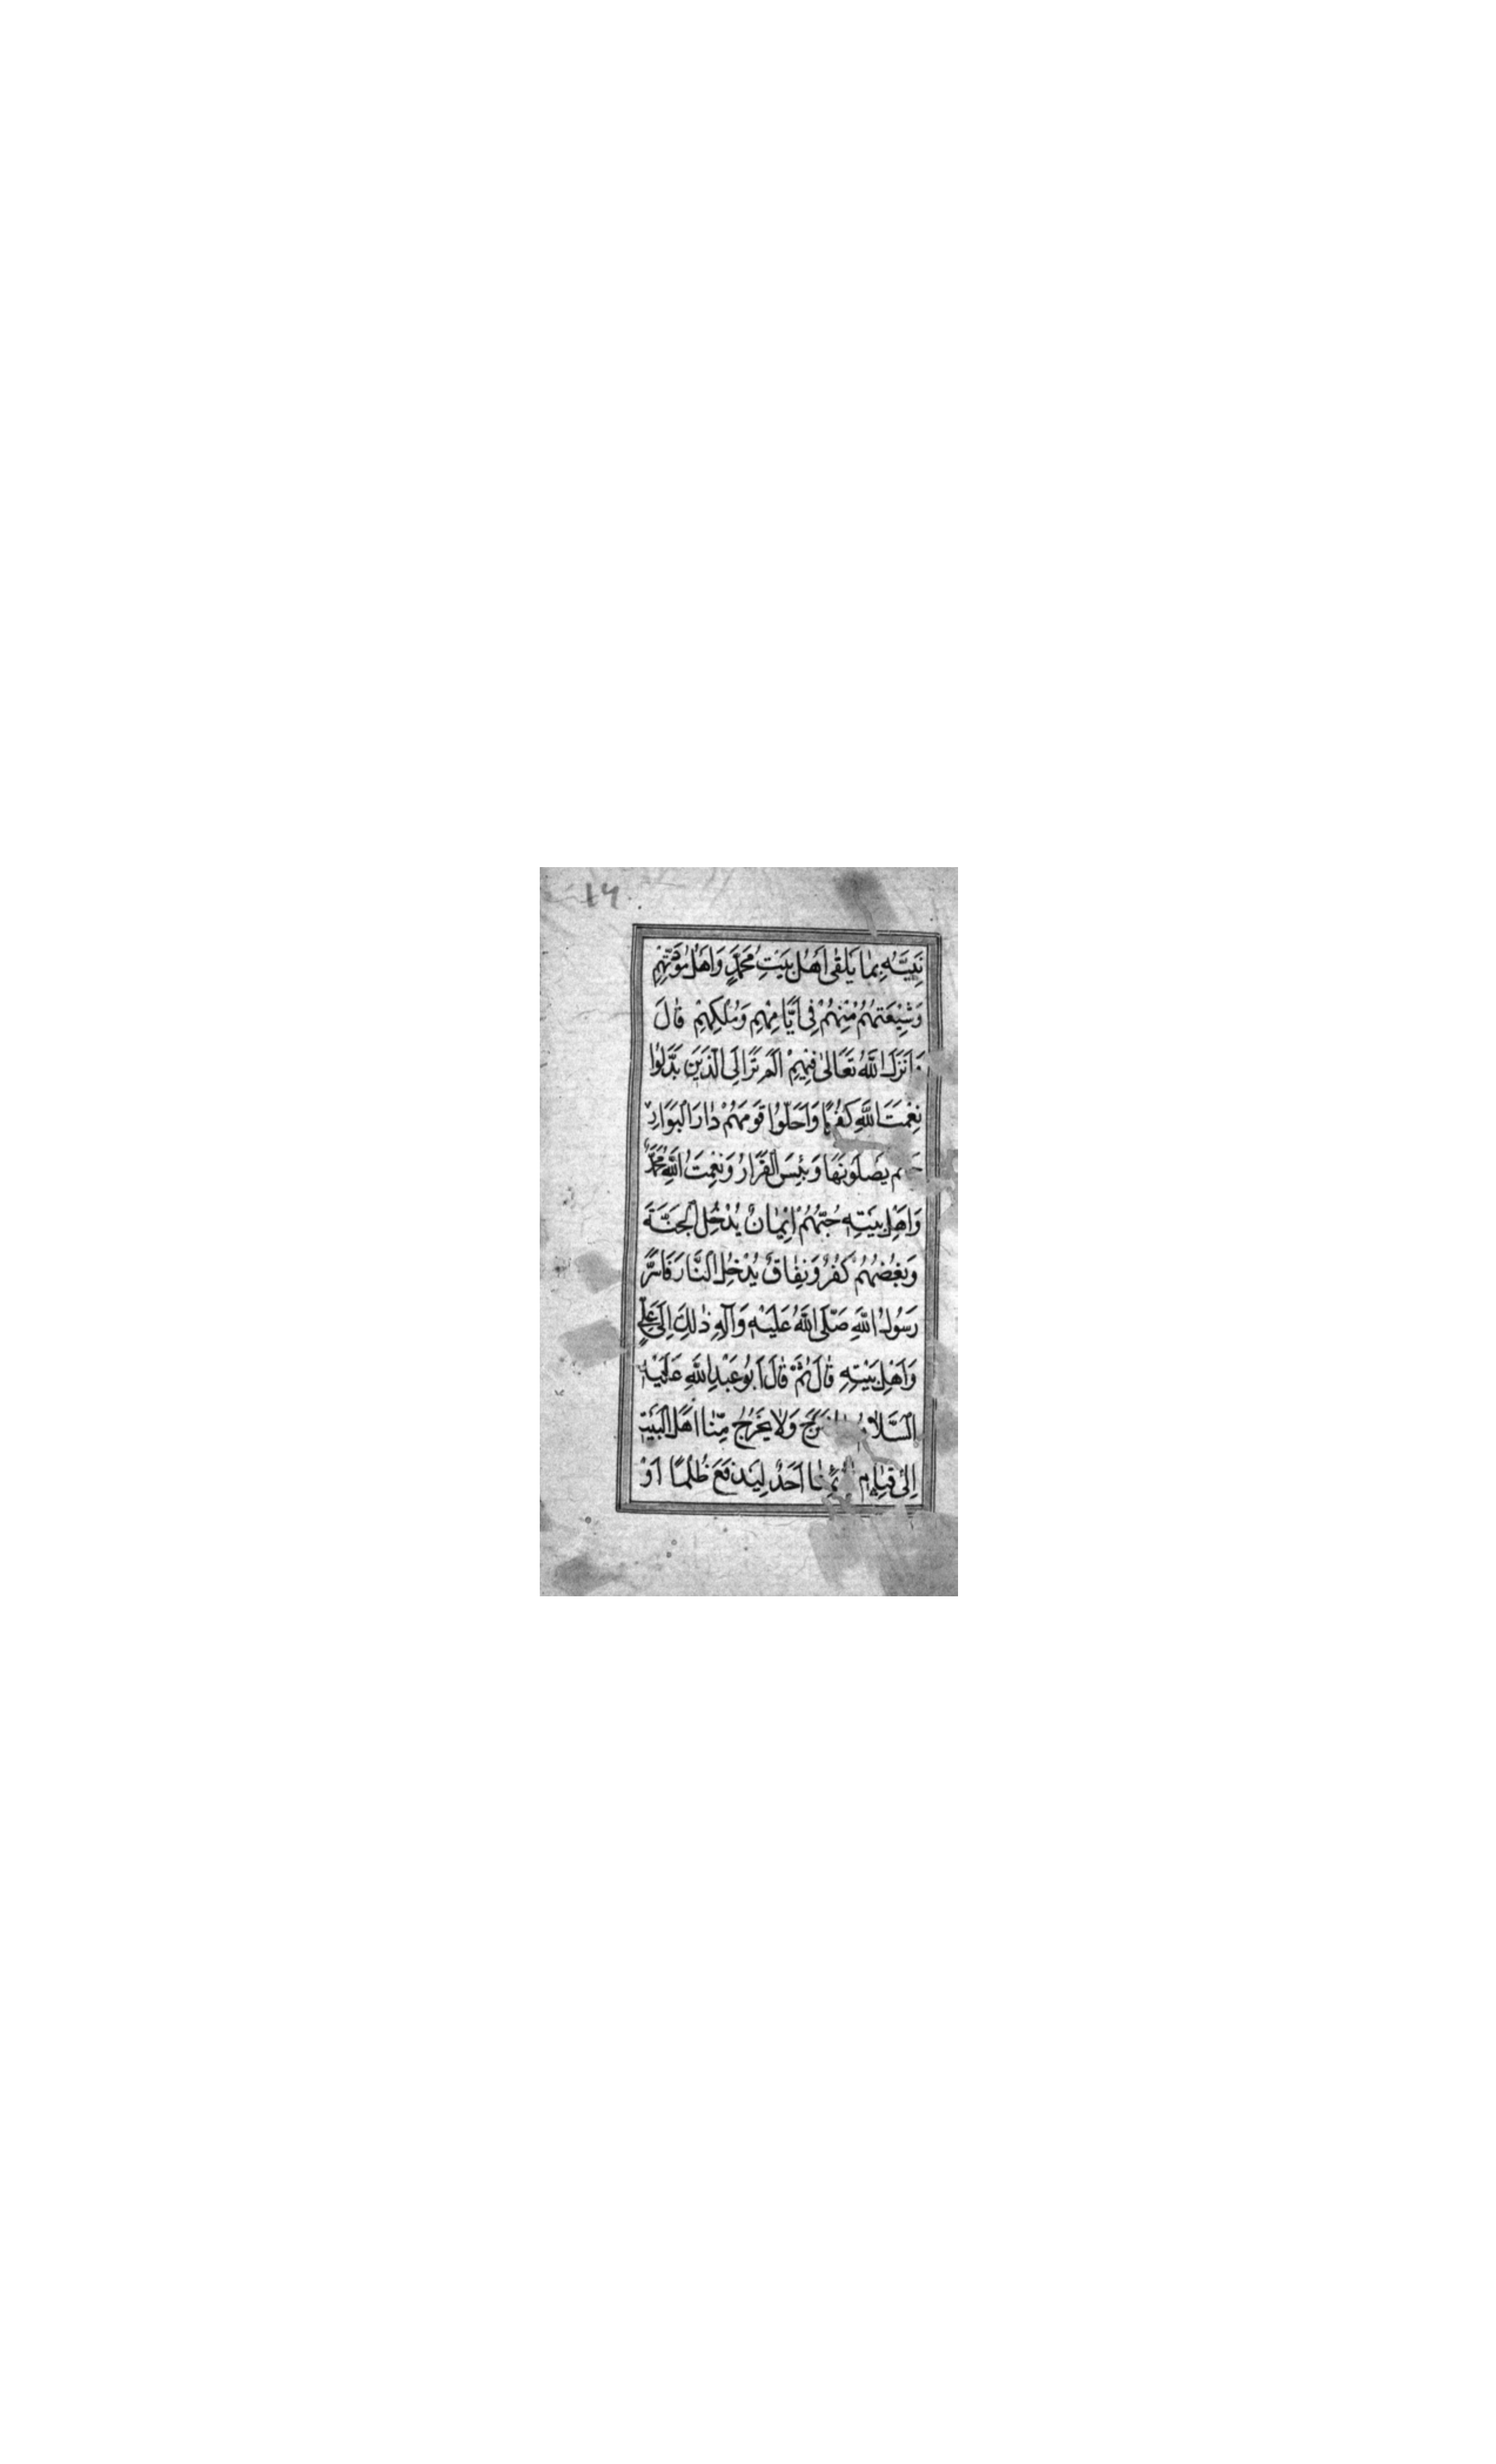 ١٦
نَبِيَّهُ بِمٰا يَلْقٰى اَهْلُ بَيْتِ مُحَمَّدٍ وَاَهْلُ مَوَدَّتِهِمْ
وَشِيْعَتُهُمْ مِنْهُمْ فِى اَيَّامِهِمْ وَمُلْكِهِمْ قٰالَ
وَاَنْزَلَ اللّٰهُ تَعَالىٰ فِيْهِمْ اَلَمْ تَرَ اِلَى الَّذِيْنَ بَدَّلُوْا
نِعْمَتَ اللّٰهِ كُفْرًا وَاَحَلُّوْا قَوْمَهُمْ دٰارَ الْبَوَارِ
يَصْلَوْنَهَا وَبِئْسَ الْقَرَارُ وَنِعْمَتُ اللّٰهِ مُحَمَّدٌ
وَاَهْلُ بَيْتِهِ حُبُّهُمْ اِيْمٰانٌ يُدْخِلُ الْجَنَّةَ
وَبُغْضُهُمْ كُفْرٌ وَنِفٰاقٌ يُدْخِلُ النَّارَ فَاَسَرَّ
رَسُوْلُ اللّٰهِ صَلَّى اللّٰهُ عَلَيْهِ وَآلِهِ ذٰلِكَ اِلىٰ عَلِىٍّ
وَاَهْلِ بَيْتِهِ قٰالَ ثُمَّ قٰالَ اَبُوْ عَبْدِ اللّٰهِ عَلَيْهِ
السَّلاٰمُ خَرَجَ وَلاٰ يَخْرُجُ مِنّٰا اَهْلَ الْبَيْتِ
اِلىٰ قِيٰامِ قٰائِمِنٰا اَحَدٌ لِيَدْفَعَ ظُلْمًا اَوْ